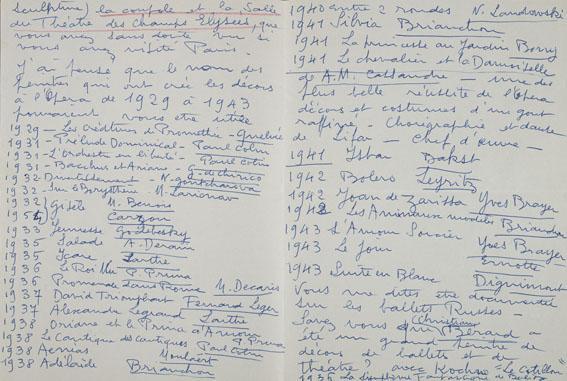 sculpture) la coupole et la Salle
du Théâtre des Champs Elysées, que
vous avez sans doute vu si
vous avez visité Paris.
J'ai pensé que le nom des
peintres qui ont créé les décors
à l'Opéra de 1929 à 1943
pourraient vous être utiles
1929 — Les créatures de Prométhée - Quelvée
1931 - Prélude Dominical - Paul Colin
1931 - L'Orchestre en liberté - Paul Colin
1931 - Bacchus et Ariane - G. de Chirico
1932 Divertissement - N. Gontcharova
1932 - Sur le Borysthène M. Larionov
1932 Gisèle M. Benois
1954 Carzon
1933 Jeunesse Godebesky
1935 Salade A. Derain
1935 Icare Larthe
1936 Le Roi Nu P. Pruna
1936 Promenade dans Rome M. Decaris
1937 David Triomphant Fernand Leger
1937 Alexandre le grand Larthe
1938 Oriane et le Prince d'Amour P. Pruna
1938 Le Cantique des Cantiques Paul Colin
1938 Aeneas Moulaert
1938 Adélaïde Brianchon
1940 entre 2 rondes N. Landowski
1941 Silvia Brianchon
1941 La princesse au Jardin Bouy
1941 Le chevalier et la Damoiselle
de A.M. Cassandre — une des
plus belle réussite de l'Opéra
décors et costumes d'un gout
raffiné - Chorégraphie et danse
de Lifar — Chef d'œuvre —
1941 Istar Bakst
1942 Bolero Leyritz
1942 Joan de Zarissa Yves Brayer
1942 Les Animaux modèles Brianchon
1943 L'Amour Sorcier Yves Brayer
1943 Le Jour Ernotte
1943 Suite en Blanc Dignimont
Vous me dites être documentée
sur les ballets Russes -
Savez vous que Christian Bérard a
été un grand peintre de
décors de ballets et de
théâtre? avec Kochno "Le Cotillon"